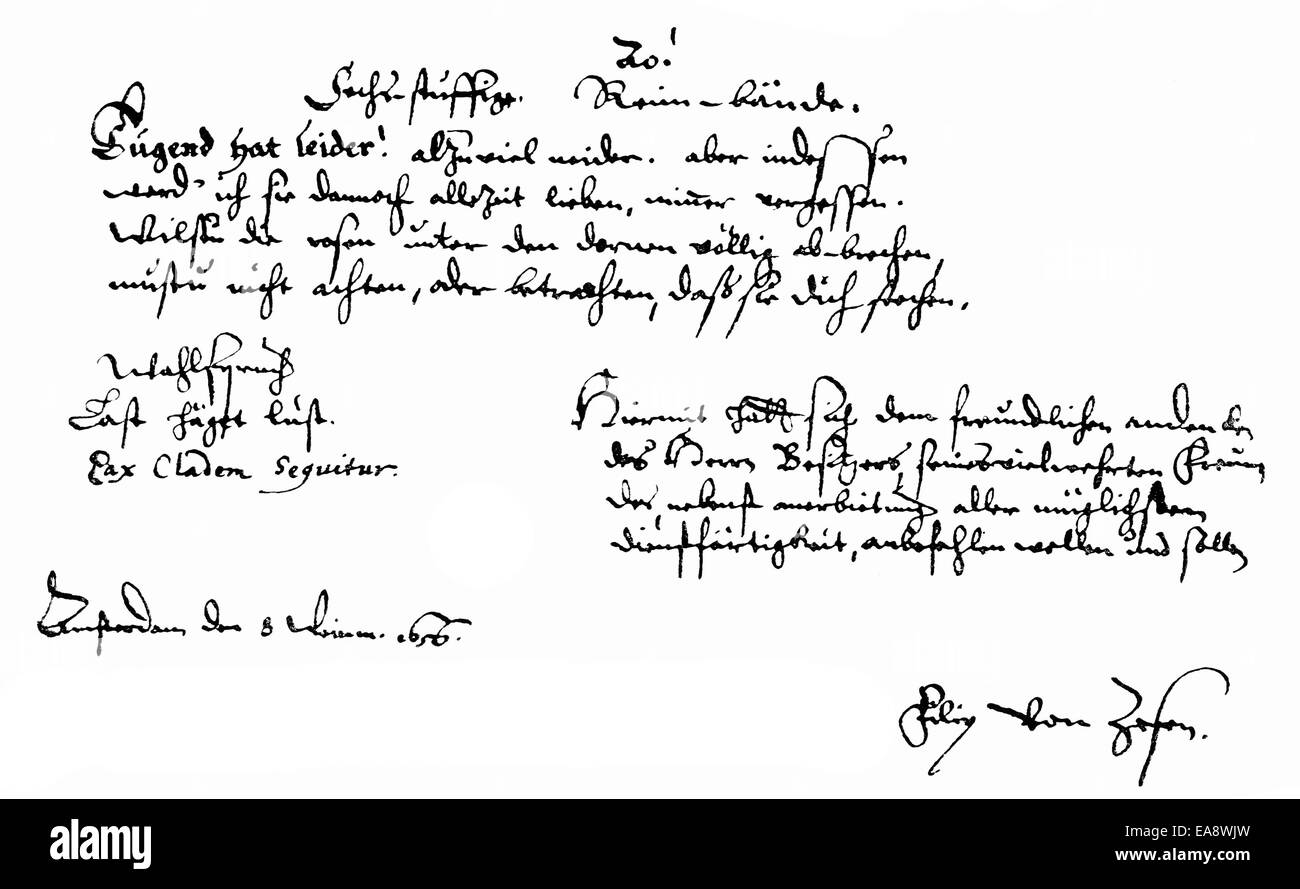 Sechs-stuffige. Reim-bände.
Tugend hat leider! alzuviel neider. aber indessen
werd' ich sie dannoch allezeit lieben, nimer vergessen.
Wilstu die rosen unter den dornen völlig ab-brechen,
mustu nicht achten, oder betrachten, daß sie dich stechen.
Wahlspruch
Last häget lust.
Pax Cladem Sequitur.
Hiermit sich dem freundlichen andenken
des Herrn Besitzers, seines vielwehrten Freun
des nebenst anerbietung aller müglichsten
dienstfärtigkeit, anbefehlen wollen und sollen
Amsterdam den 8 Weinm. 1656.
Filip von Zesen.
alamy
alamy
Image ID: EA8WJW
www.alamy.com